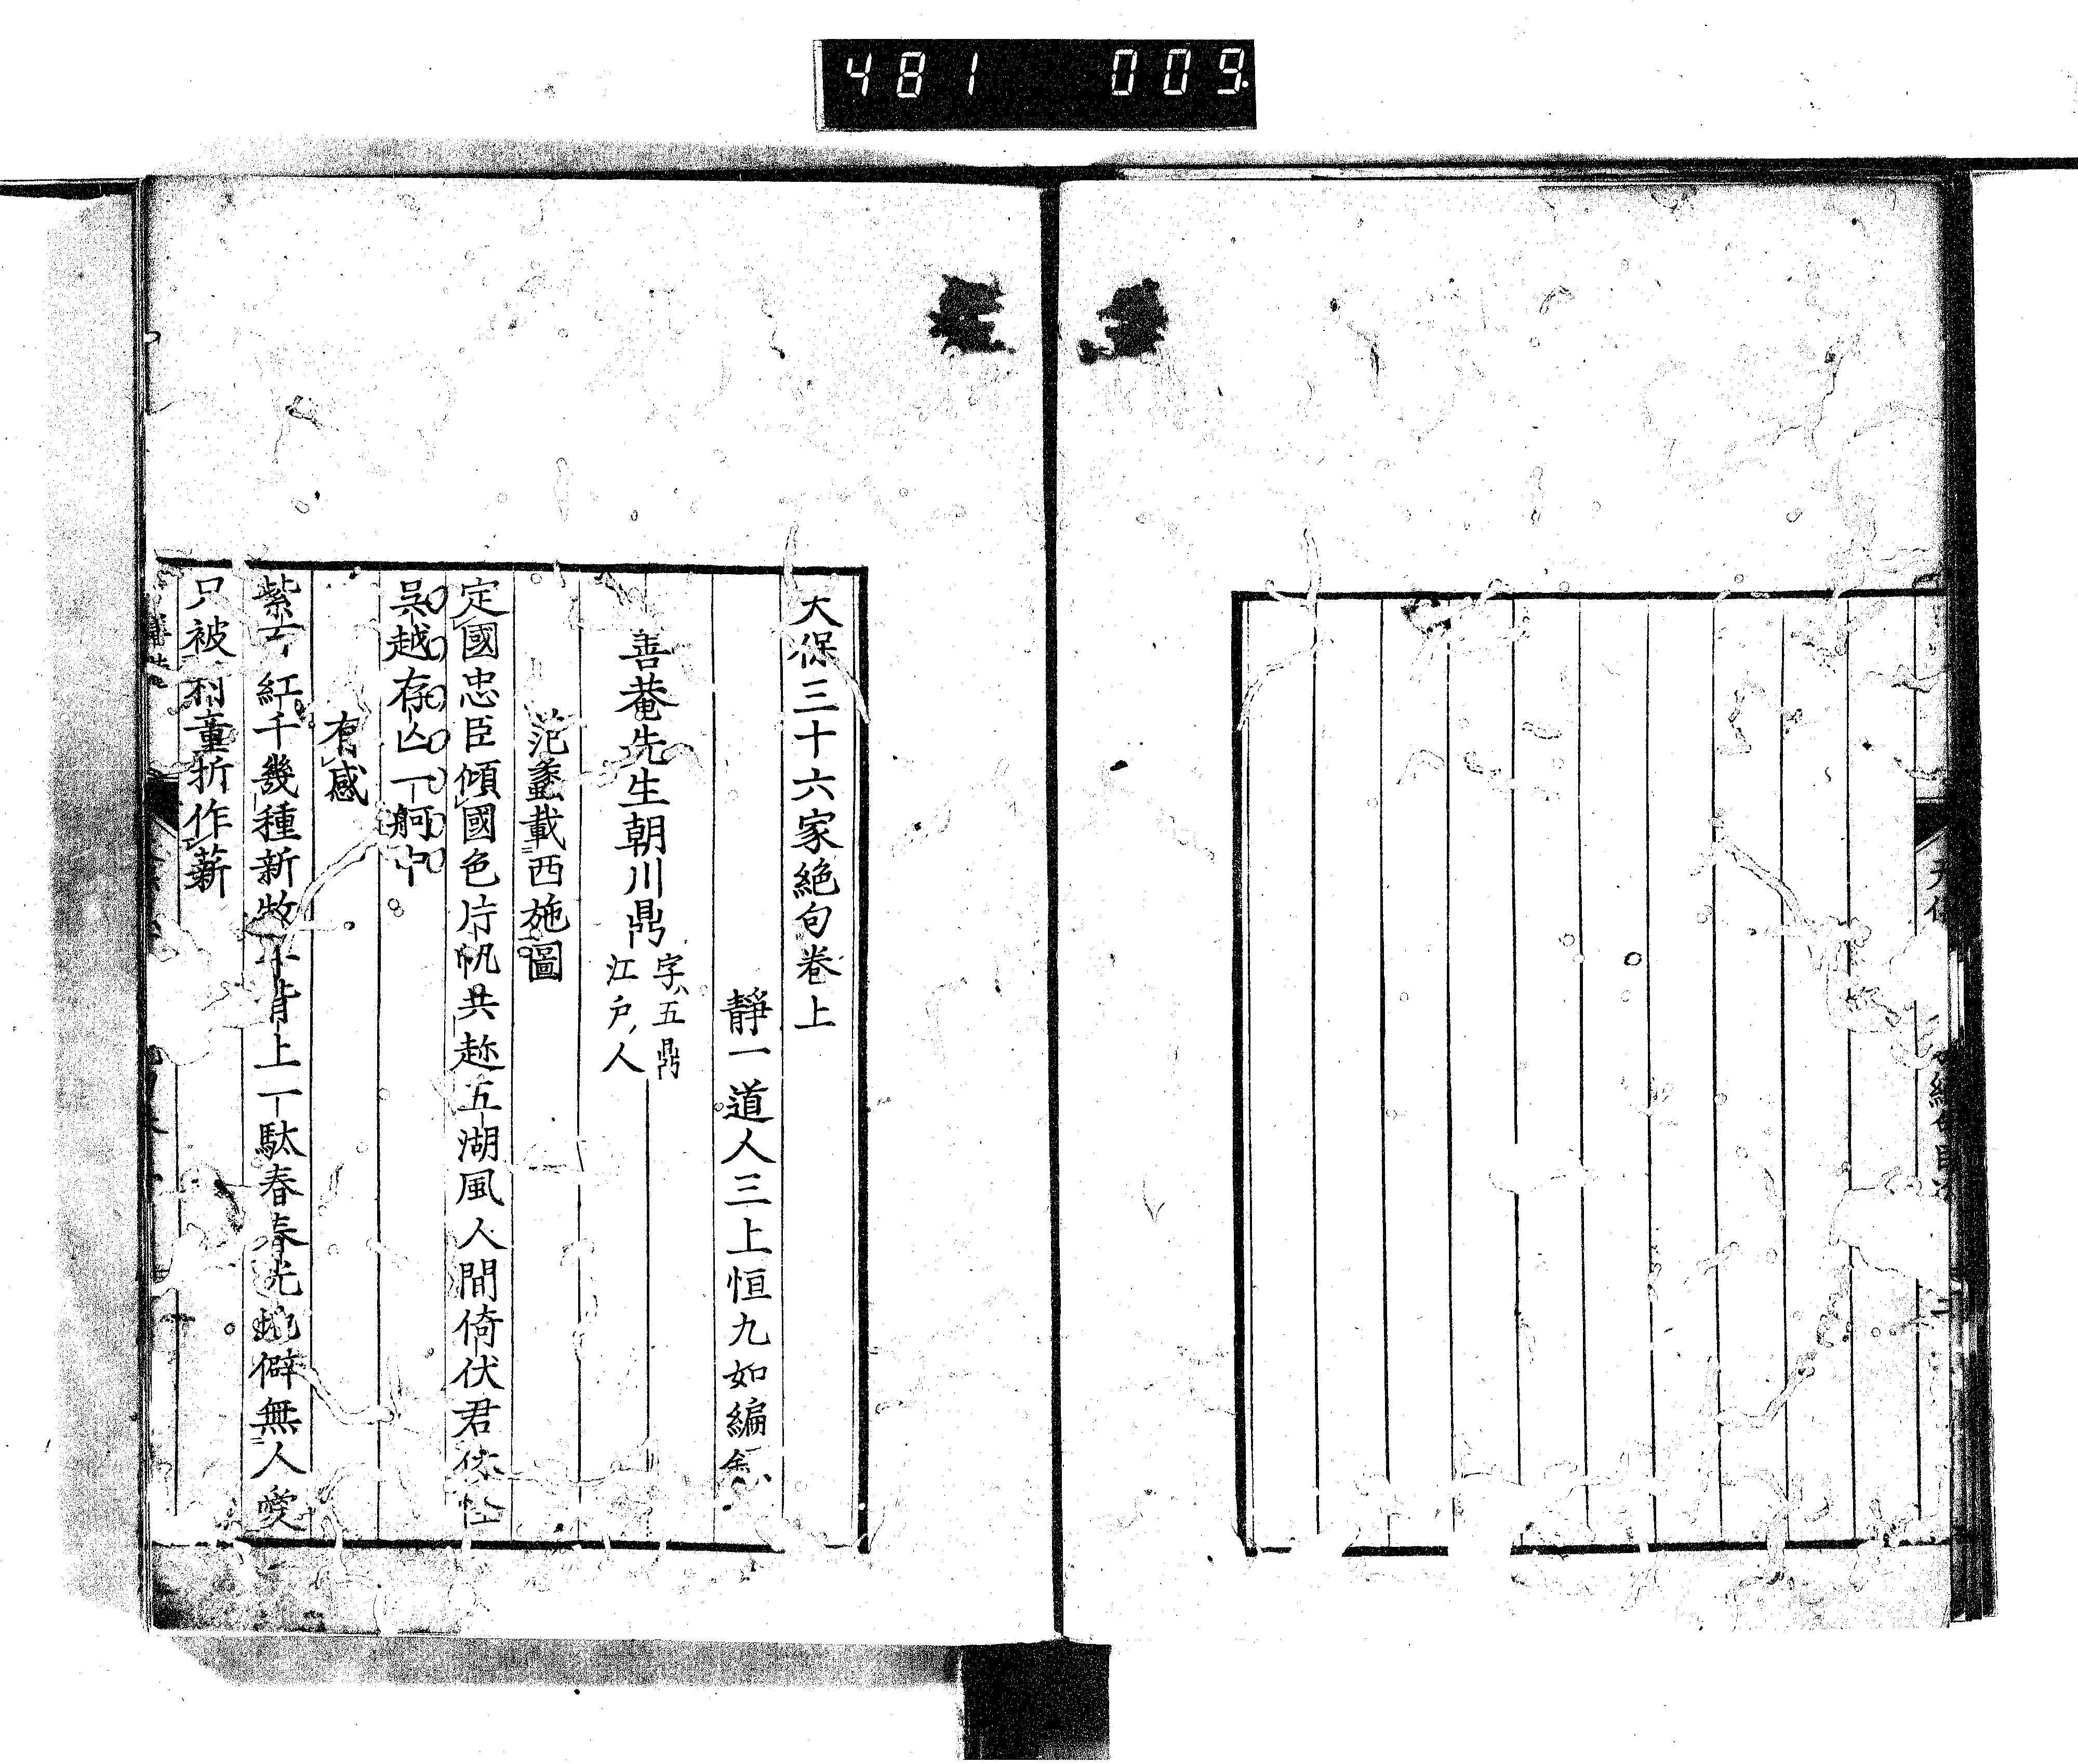 481 009.
天保三十六家絶句卷上
靜一道人三上恒九如編
善菴先生朝川鼎
字五鼎
江戸人
范蠡載西施圖
定國忠臣傾國色片帆共趂五湖風人間倚伏君休怪
吳越存亾一舸中
有感
紫 紅千幾種新 牛背上一駄春春光 僻無人愛
只被村童折作薪